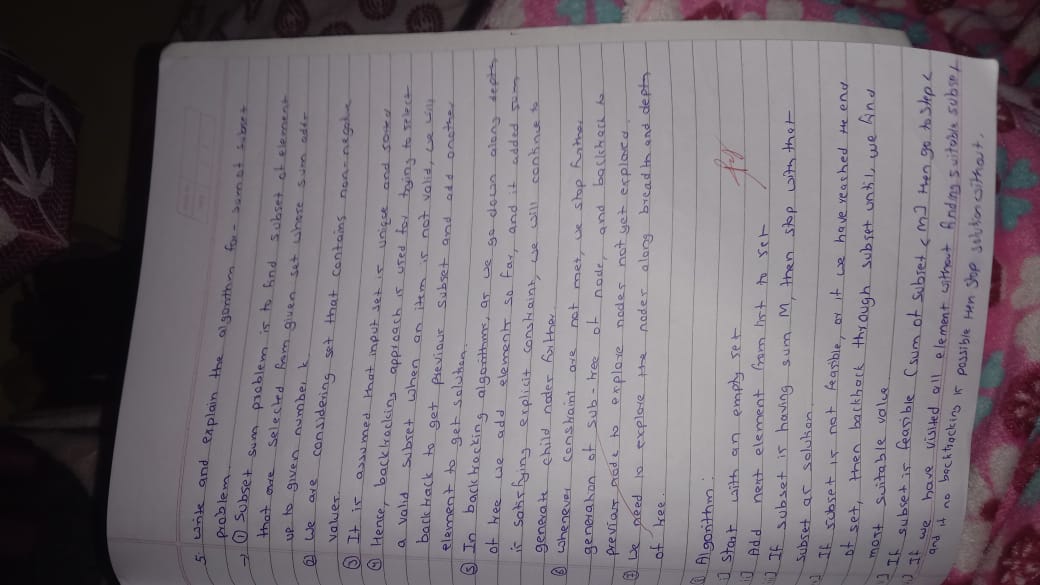 5. Write and explain the algorithm for - sum of subset
problem.
→ ① Subset sum problem is to find subset of element
that are selected from given set whose sum adds
up to given number k.
② We are considering set that contains non-negative
values.
③ It is assumed that input set is unique and sorted
④ Hence, backtracking approach is used for trying to select
a valid subset when an item is not valid, we will
backtrack to get previous subset and add another
element to get solution.
⑤ In backtracking algorithms, as we go down along depth
of tree we add elements so far, and if added sum
is satisfying explicit constraint, we will continue to
generate child nodes further.
⑥ Whenever constraint are not met, we stop further
generation of sub-tree of node, and backtrack to
previous node to explore nodes not yet explored.
⑦ We need to explore the nodes along breadth and depth
of tree.
Algorithm:
i) Start with an empty set
Add next element from list to set
If subset is having sum M, then stop with that
subset as solution.
If subset is not feasible, or if we have reached the end
of set, then backtrack through subset until, we find
most suitable value.
If subset is feasible (sum of subset < M) then go to step
If we have visited all element without finding suitable subset
and if no backtracking is possible then stop solution without.